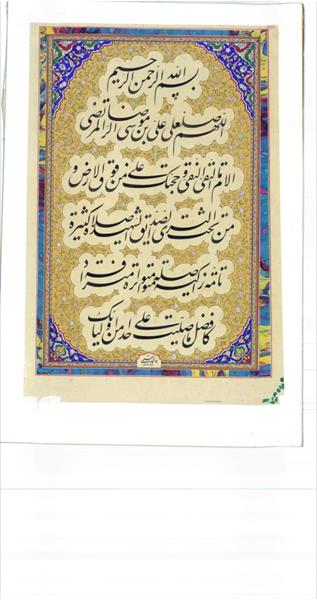 بسم الله الرحمن الرحیم
اللهم صل علی علی بن موسی الرضا المرتضی
الامام التقی النقی و حجتک علی من فوق الارض و
من تحت الثری الصدیق الشهید صلاة کثیرة
تامة زاکیة متواصلة متواترة مترادفة
کافضل ما صلیت علی احد من اولیائک